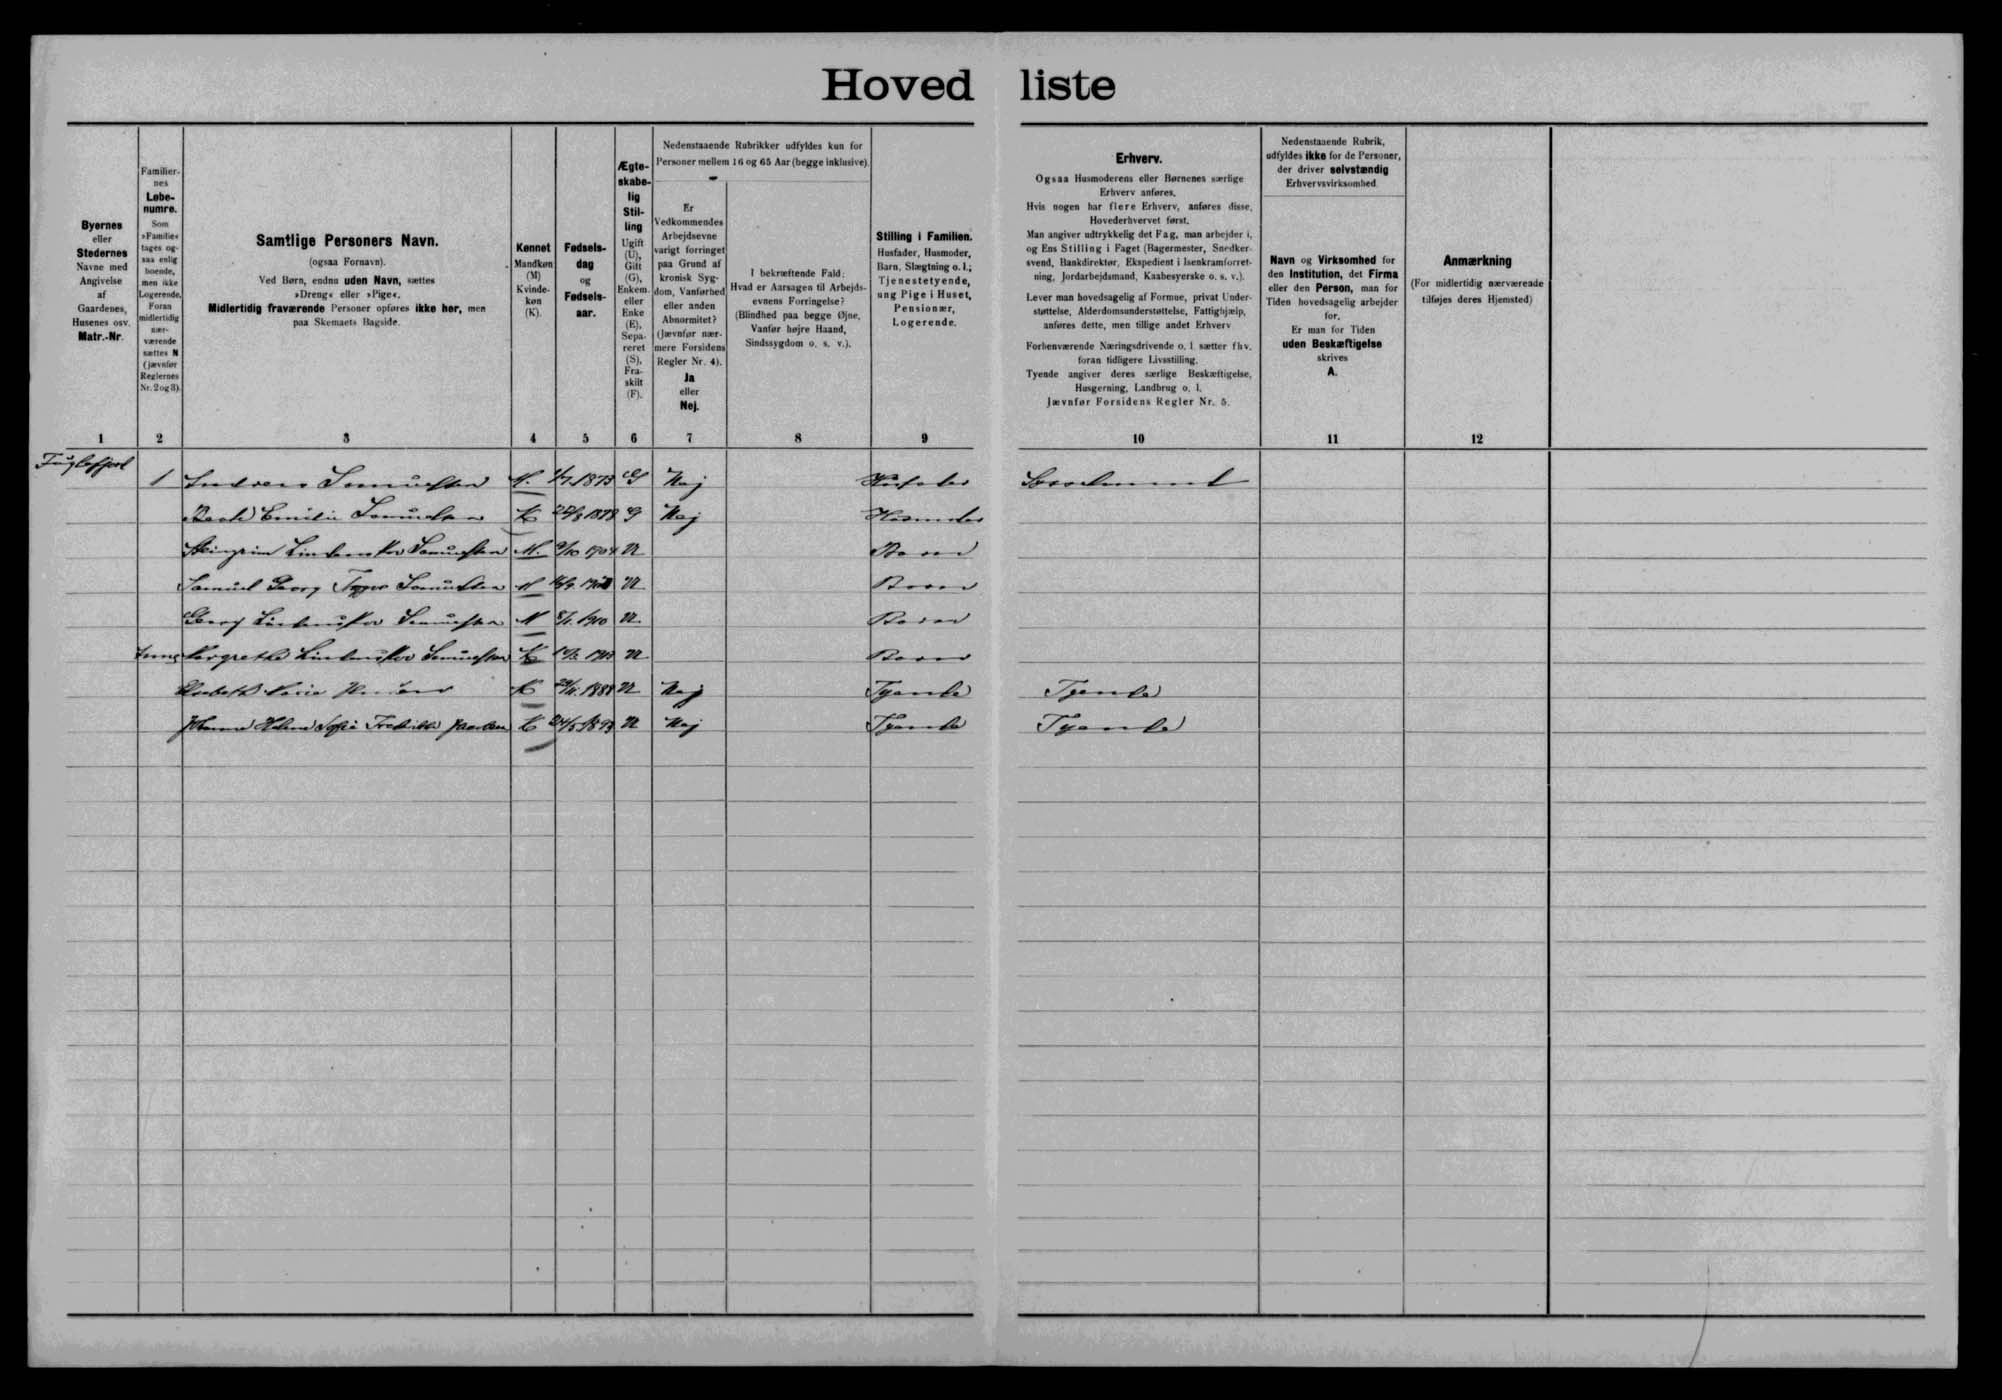 Hovedliste
Byernes
eller
Stedernes
Navne med
Angivelse
af
Gaardenes,
Husenes osv.
Matr.-Nr.
Familier-
nes
Løbe-
numre.
Som
»Familie«
tages og-
saa enlig
boende,
men ikke
Logerende.
Foran
midlertidig
nær-
værende
sættes N
(jævnfør
Reglernes
Nr. 2 og 3).
Samtlige Personers Navn.
(ogsaa Fornavn).
Ved Børn, endnu uden Navn, sættes
»Dreng« eller »Pige«.
Midlertidig fraværende Personer opføres ikke her, men
paa Skemaets Bagside.
Kønnet
Mandkøn
(M)
Kvinde-
køn
(K).
Fødsels-
dag
og
Fødsels-
aar.
Ægte-
skabe-
lig
Stil-
ling
Ugift
(U),
Gift
(G),
Enkem.
eller
Enke
(E),
Sepa-
reret
(S),
Fra-
skilt
(F).
Nedenstaaende Rubrikker udfyldes kun for
Personer mellem 16 og 65 Aar (begge inklusive).
Er
Vedkommendes
Arbejdsevne
varigt forringet
paa Grund af
kronisk Syg-
dom, Vanførhed
eller anden
Abnormitet?
(Jævnfør nær-
mere Forsidens
Regler Nr. 4).
Ja
eller
Nej.
I bekræftende Fald:
Hvad er Aarsagen til Arbejds-
evnens Forringelse?
(Blindhed paa begge Øjne,
Vanfør højre Haand,
Sindssygdom o. s. v.).
Stilling i Familien.
Husfader, Husmoder,
Barn, Slægtning o. l.;
Tjenestetyende,
ung Pige i Huset,
Pensionær,
Logerende.
Erhverv.
Ogsaa Husmoderens eller Børnenes særlige
Erhverv anføres.
Hvis nogen har flere Erhverv, anføres disse,
Hovederhvervet først.
Man angiver udtrykkelig det Fag, man arbejder i,
og Ens Stilling i Faget (Bagermester, Snedker-
svend, Bankdirektør, Ekspedient i Isenkramforret-
ning, Jordarbejdsmand, Kaabesyerske o. s. v.).
Lever man hovedsagelig af Formue, privat Under-
støttelse, Alderdomsunderstøttelse, Fattighjælp,
anføres dette, men tillige andet Erhverv
Forhenværende Næringsdrivende o. l. sætter fhv.
foran tidligere Livsstilling.
Tyende angiver deres særlige Beskæftigelse,
Husgerning, Landbrug o. l.
Jævnfør Forsidens Regler Nr. 5.
Nedenstaaende Rubrik,
udfyldes ikke for de Personer,
der driver selvstændig
Erhvervsvirksomhed.
Navn og Virksomhed for
den Institution, det Firma
eller den Person, man for
Tiden hovedsagelig arbejder
for.
Er man for Tiden
uden Beskæftigelse
skrives
A.
Anmærkning
(For midlertidig nærværende
tilføjes deres Hjemsted)
1 2 3 4 5 6 7 8 9 10 11 12
1 Samuelsen M. 1/7 1873 G Nej Husfader Sysselmand
Emilie Samuelsen K 1878 G Nej Husmoder
Steingrim Samuelsen M. 9/10 U Barn
Samuel Georg Samuelsen M U Barn
Georg Samuelsen M 8/1. 1910 U. Barn
Margrethe Samuelsen K U Barn
Elsebeth Maria K 1888 U Nej Tyende Tyende
Johanne Helene Sofie Fredrikke K 24/5 U Nej Tyende Tyende